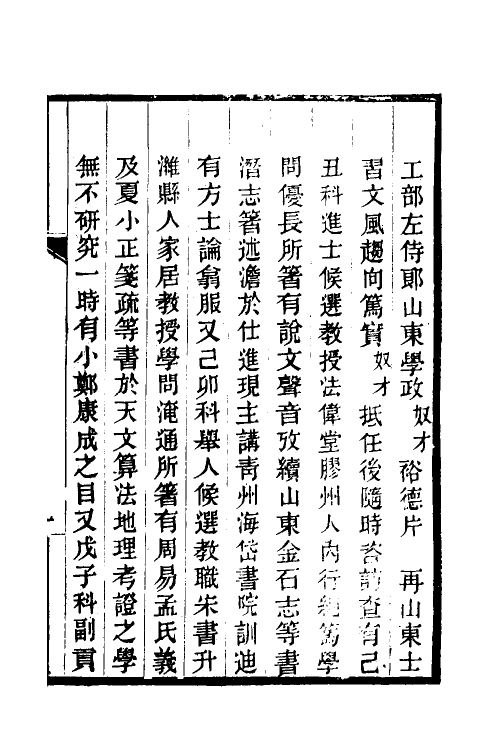 工部左侍郎山東學政奴才裕德片　再山東士
習文風趨向篤實奴才抵任後隨時咨訪查有己
丑科進士候選教授法偉堂膠州人內行純篤學
問優長所箸有說文聲音攷續山東金石志等書
潛志箸述澹於仕進現主講靑州海岱書院訓迪
有方士論翕服又己卯科舉人候選教職朱書升
濰縣人家居教授學問淹通所箸有周易孟氏義
及夏小正箋疏等書於天文算法地理考證之學
無不研究一時有小鄭康成之目又戊子科副貢